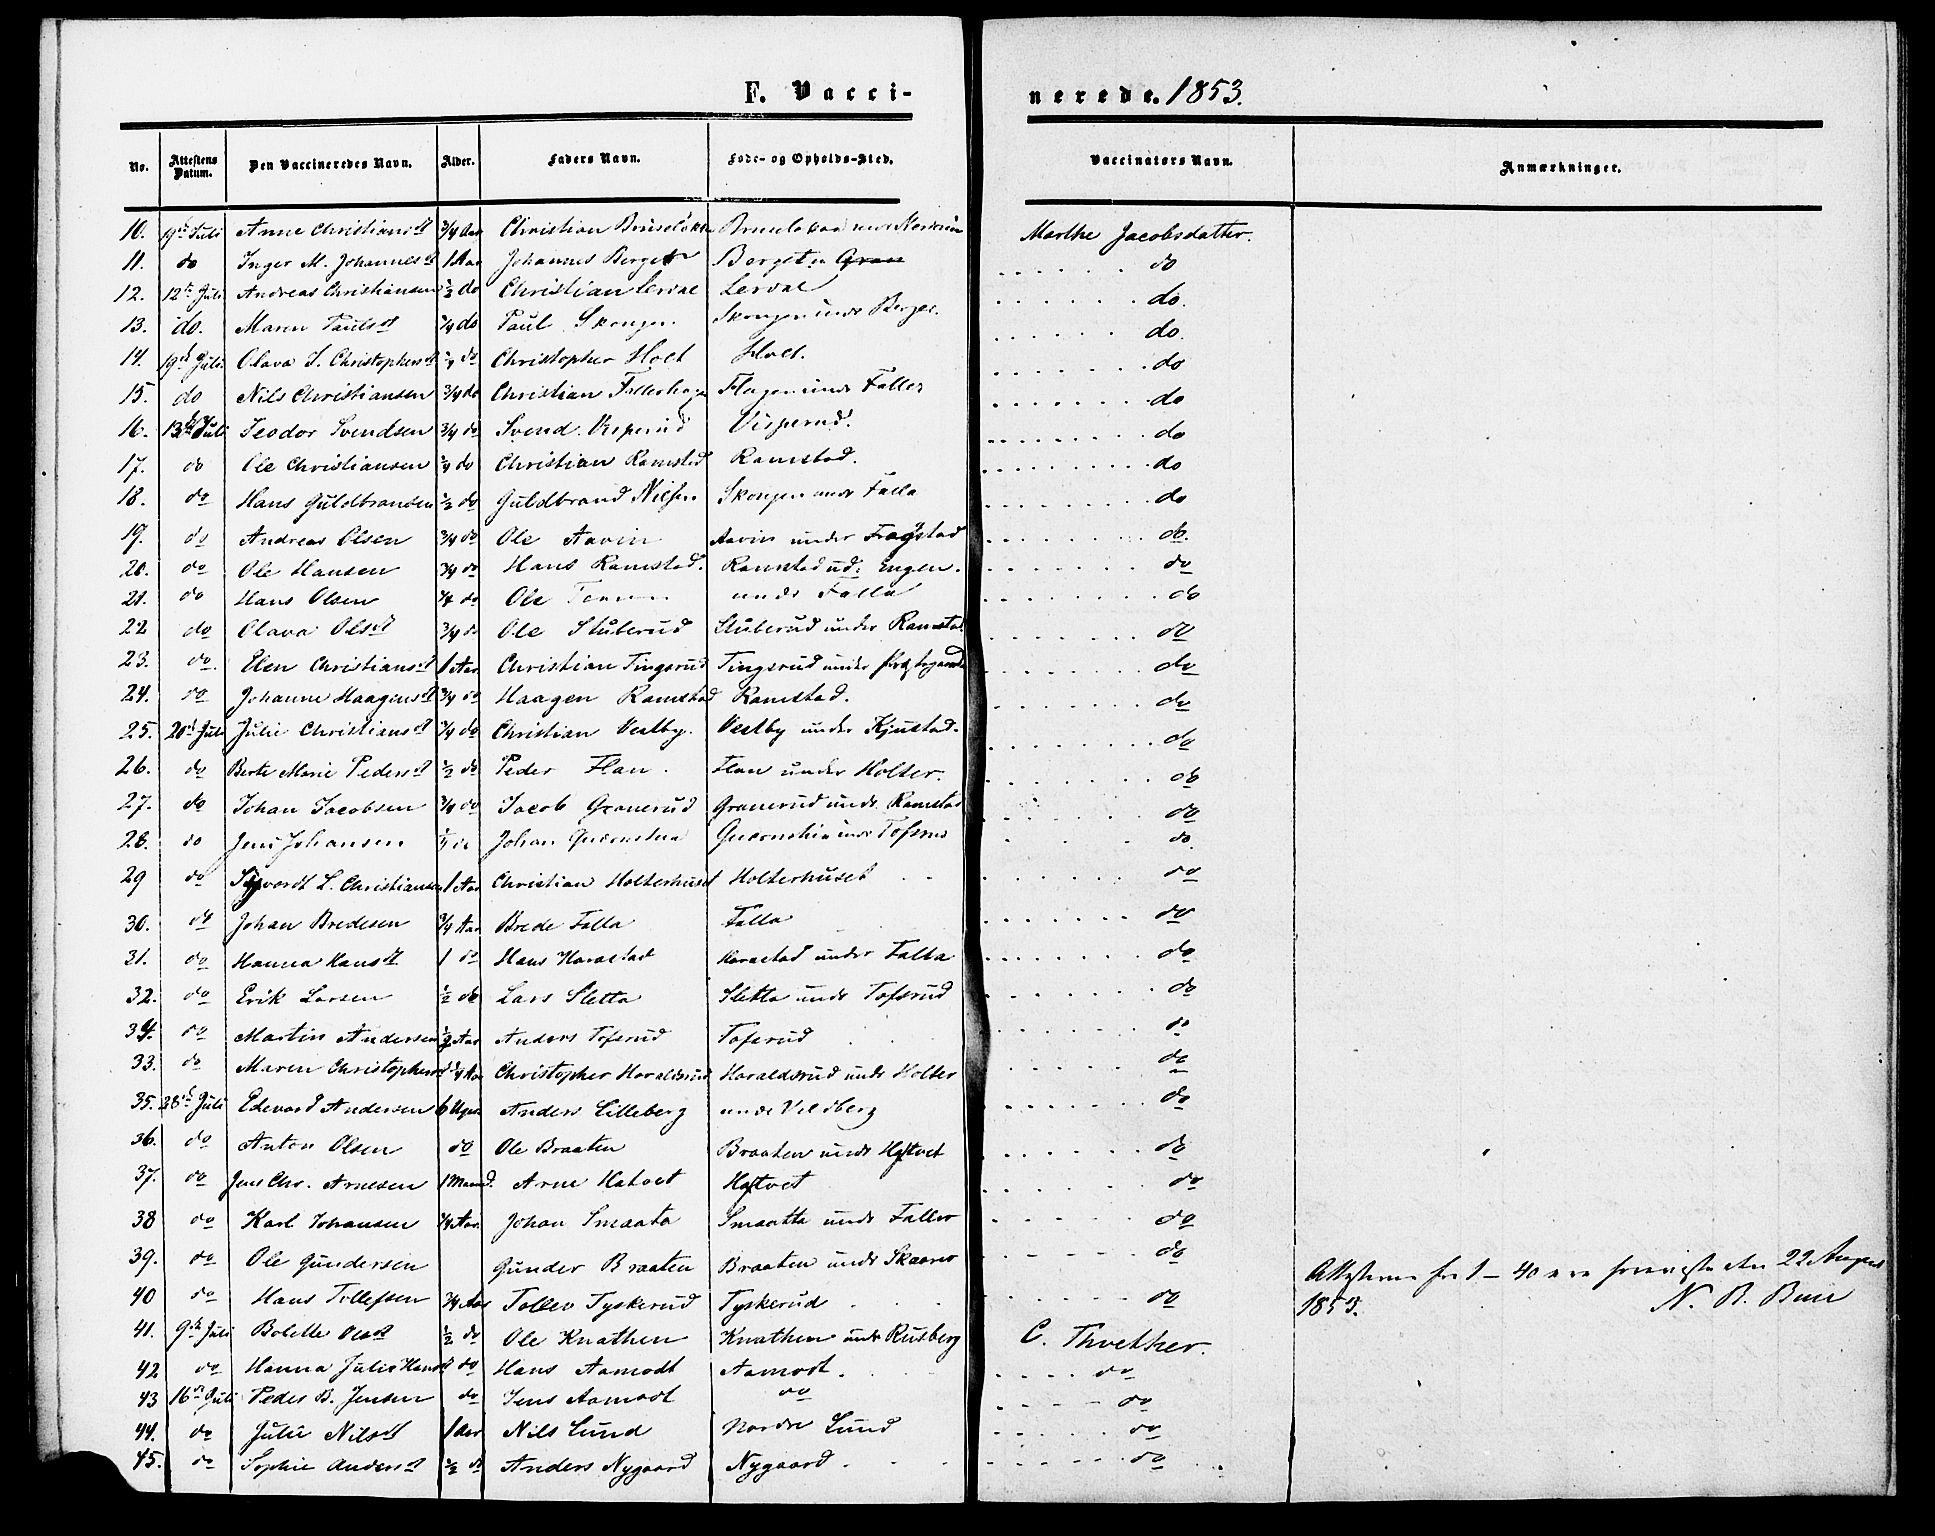 F. Vacci-
nerede. 1853.
No. Attestens Datum. Den Vaccineredes Navn. Alder. Faders Navn. Føde- og Opholds-Sted. Vaccinators Navn. Anmærkninger.
10. 19de Juli Anne Christiansdt 3/4 Aar Christian Marthe Jacobsdatter.
11. do Inger M. Johannesdt 1 Aar Johannes Berget Berget do
12. 12te Juli Andreas Christiansen 1/2 do Christian Lerval Lerval do.
13. do. Maren Paulsdt do Paul Skongen Skongen unde do.
14. 19de Juli Olava S. Christophersdt do Christopher Hoel Hoel. do
15. do Nils Christiansen 3/4 do Christian unde Faller do
16. 13de Juli Teodor Svendsen 3/4 do Svend Visperud Visperud. do
17. do Ole Christiansen do Christian Ramstad Ramstad. do
18. do Hans Guldbransen 1/2 do Guldbrand Nilsen Skongen unde Falla do
19. do Andreas Olsen 3/4 do Ole Aavin Aavin under Fragstad do.
20. do Ole Hansen 3/4 do Hans Ramstad. Ramstad ud. Engen. do
21. do Hans Olsen do Ole unde Falla do
22 do Olava Olsdt 3/4 do Ole Stuberud Stuberud under Ramstad do
23. do. Elen Christiansdt 1 Aar Christian Tingsrud Tingsrud under do
24. do Johanne Haagensdt 3/4 do Haagen Ramstad Ramstad. do
25. 20de Juli Julie Christiansdt 3/4 do Christian Vestby. Vestby under Kjustad. do
26. do Berte Marie Pedersdt 1/2 do Peder Flan. Flan under Holter. do
27. do Johan Jacobsen 3/4 do Jacob Granerud Granerud unde Ramstad do
28. do Jens Johansen do Johan unde Tofsrud do.
29 do Sigvardt L. Christiansen 1 Aar Christian Holterhuset Holterhuset do
30. do Johan Bredesen 3/4 Aar Brede Falla Falla do
31. do Hanna Hansdt 1 do Hans Harastad Harastad under Falla do
32. do Erik Larsen 1/2 do Lars Sletta Sletta unde Tofsrud do
34. do Martin Andersen 1/2 Aar Anders Tofsrud Tofsrud do
33. do Maren Christophersdt 1/4 Aar Christopher Haraldsrud Haraldsrud unde Holter do
35. 28de Juli Edevard Andersen 6 Uger Anders Lilleberg unde Veldberg do
36. do Anton Olsen do Ole Braaten Braaten unde Haltvet do
37. do Jens Chr. Arnesen 1 Maaned. Arne Hatvet Haltvet do
38 do Karl Johansen 3/4 Aar. Johan Smaata Smaatta unde Faller do
39. do Ole Gundersen Gunder Braaten Braaten unde do
40 do Hans Tollefsen 3/4 Aar Tollev Tyskerud Tyskerud do
Attesterne fra 1 - 40 ere foreviste den 22 August
1853. N. B. Bull
41. 9de Juli Bolette Olsdt 1/2 do Ole Knathen Knathen unde Rusberg C. Thvether.
42 do Hanna Julie Hansdt do Hans Aamodt Aamodt. do
43 16de Juli Peder B. Jensen do Jens Aamodt do do
44. do Julie Nilsdt 1 Aar Nils Lund Nordre Lund do
45. do Sophie Andersdt 1/2 do Anders Nygaard Nygaard do